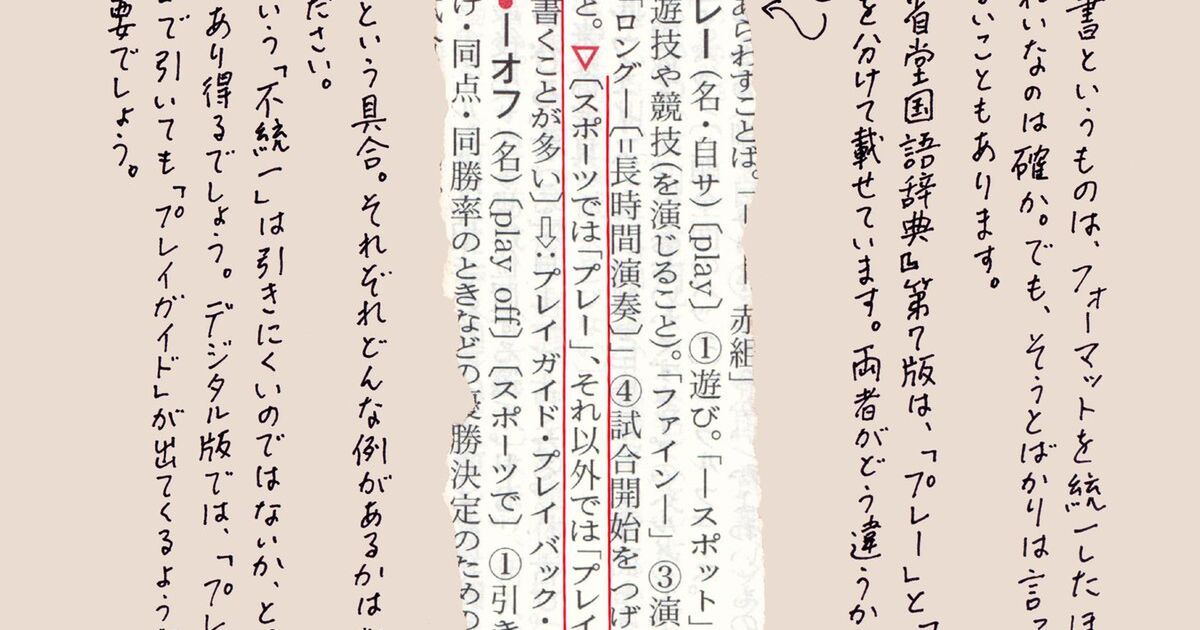 書というものは、フォーマットを統一したほ
れいなのは確か。でも、そうとばかりは言
ないこともあります。
省堂国語辞典』第7版は、「プレー」と「
を分けて載せています。両者がどう違うか
あらわすことば。
赤組」
レー(名・自サ)〔play〕①遊び。「ースポット」
遊技や競技(を演じること)。「ファインー」③演
「ロングー〔=長時間演奏〕」④試合開始をつげ
と。▽〔スポーツでは「プレー」、それ以外では「プレイ
書くことが多い〕⇩:プレイガイド・プレイバック・
●ーオフ(名)〔play off〕〔スポーツで〕①引き
け・同点・同勝率のときなどの優勝決定のための
という具合。それぞれどんな例があるかは
ださい。
いう「不統一」は引きにくいのではないか、と
あり得るでしょう。デジタル版では、「プレ
で引いても「プレイガイド」が出てくるよう
要でしょう。